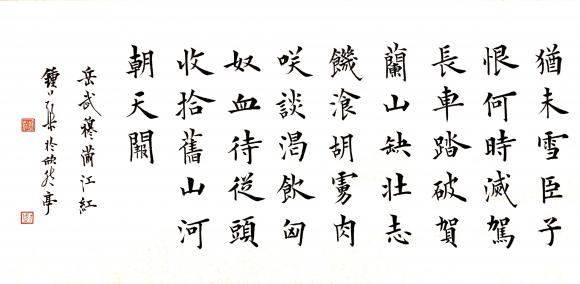 猶未雪臣子
恨何時滅駕
長車踏破賀
蘭山缺壯志
饑湌胡虜肉
咲談渴飲匈
奴血待從頭
收拾舊山河
朝天闕
岳武穆滿江紅
於 亭